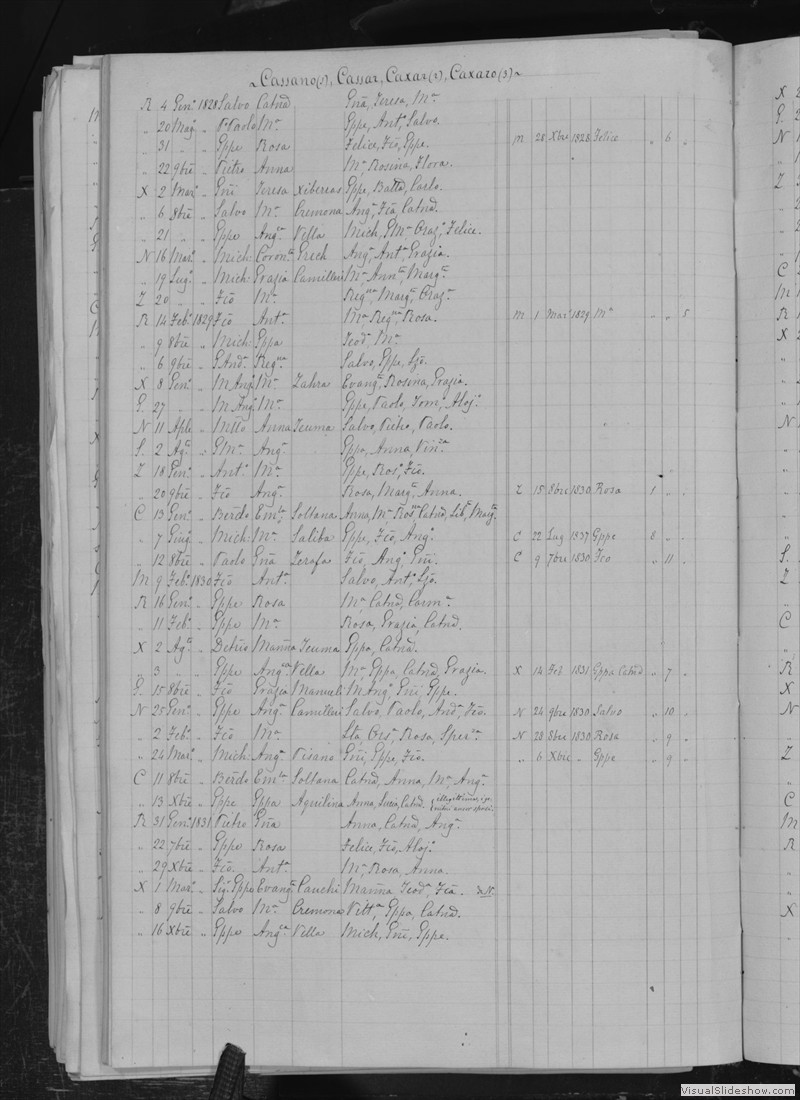 Cassano(1), Cassar, Caxar(2), Caxaro(3)
R 4 Genº 1828 Salvo Catnd Gña, Teresa, Mª
„ 20 Magº „ P. Paolo Mª Gppe, Antº, Salvo.
„ 31 „ „ Gppe Rosa Felice, Fcõ, Gppe. M 28 Xbre 1828 Felice „ 6 „
„ 22 9bre „ Pietro Anna Mª Rosina, Flora.
X 2 Marº „ Gñi Teresa Xiberras Gppe, Batta, Carlo.
„ 6 8bre „ Salvo Mª Cremona Angª, Fca, Catnd.
„ 21 „ „ Gppe Angª Vella Mich, GMª Orazº, Felice.
N 16 Marº „ Mich: Coronta Grech Angª, Antª, Grazia.
„ 19 Lugº „ Mich: Grazia Camilleri Mª, Annta, Margta.
Z 20 „ „ Fcõ Mª Regna, Margta, Orazº.
R 14 Febº 1829 Fcõ Antª Mª Regna, Rosa. M 1 Marº 1829 Mª „ „ 5
„ 9 8bre „ Mich: Gppa Teodª, Mª
„ 6 9bre „ GAndª Regna Salvo, Gppe, Lzõ.
X 8 Genº „ M Angº Mª Zahra Evangta, Rosina, Grazia.
G. 27 „ „ M Angº Mª Gppe, Paolo, Tom, Alojº.
N 11 Aple „ Mello Anna Teuma Salvo, Pietro, Paolo.
S. 2 Agto „ GMª Angª Gppa, Anna, Vinza
Z 18 Genº „ Antº Mª Gppe, Rosº, Fcõ.
„ 20 9bre „ Fcõ Angª Rosa, Margta, Anna. Z 15 8bre 1830 Rosa 1 „ „
C 13 Genº „ Berdo Emla Soltana Anna, Mª Rosria, Catnd, Libª, Margta
„ 7 Giugº „ Mich: Mª Saliba Gppe, Fcõ, Angº. C 22 Lug 1837 Gppe 8 „ „
„ 12 8bre „ Paolo Gña Zerafa Fcõ, Angº, Gñi. C 9 7bre 1830 Fco „ 11 „
M 9 Febº 1830 Fcõ Antª Salvo, Antº, Lzõ.
R 16 Genº „ Gppe Rosa Mª Catnd, Carmª.
„ 11 Febº „ Gppe Mª Rosa, Grazia, Catnd.
X 2 Agto „ Demña Teuma Gppa, Catnd.
„ 3 „ „ Gppe Angca Vella Mª, Gppa, Catnd, Grazia. X 14 Feb 1831 Gppa Catnd „ 7 „
G. 15 8bre „ Fcõ Grazia Mamuli M Angº, Gñi, Gppe.
N 25 Genº „ Gppe Angª Camilleri Salvo, Paolo, Andª, Fcõ. N 24 9bre 1830 Salvo „ 10 „
„ 2 Febº „ Fcõ Mª Lta, Orsª, Rosa, Sperza. N 28 8bre 1830 Rosa „ 9 „
„ 24 Marº „ Mich: Angª Pisano Gñi, Gppe, Fcõ. „ 6 Xbre „ Gppe „ 9 „
C 11 8bre „ Berdo Emla Soltana Catnd, Anna, Mª, Angª.
„ 13 Xbre „ Gppe Gppa Aquilina Anna, Lucia, Catnd.
R 31 Genº 1831 Pietro Gña Anna, Catnd, Angª.
„ 22 7bre „ Gppe Rosa Felice, Fcõ, Alojº.
„ 29 Xbre „ Fcõ. Antª Mª, Rosa, Anna.
X 1 Marº „ Sig. Gppe Evangta Cauchi Manña Teodª, Fca.
„ 8 9bre „ Salvo Mª Cremona Vittª, Gppa, Catnd.
„ 16 Xbre „ Gppe Angca Vella Mich, Gñi, Gppe.
VisualSlideshow.com